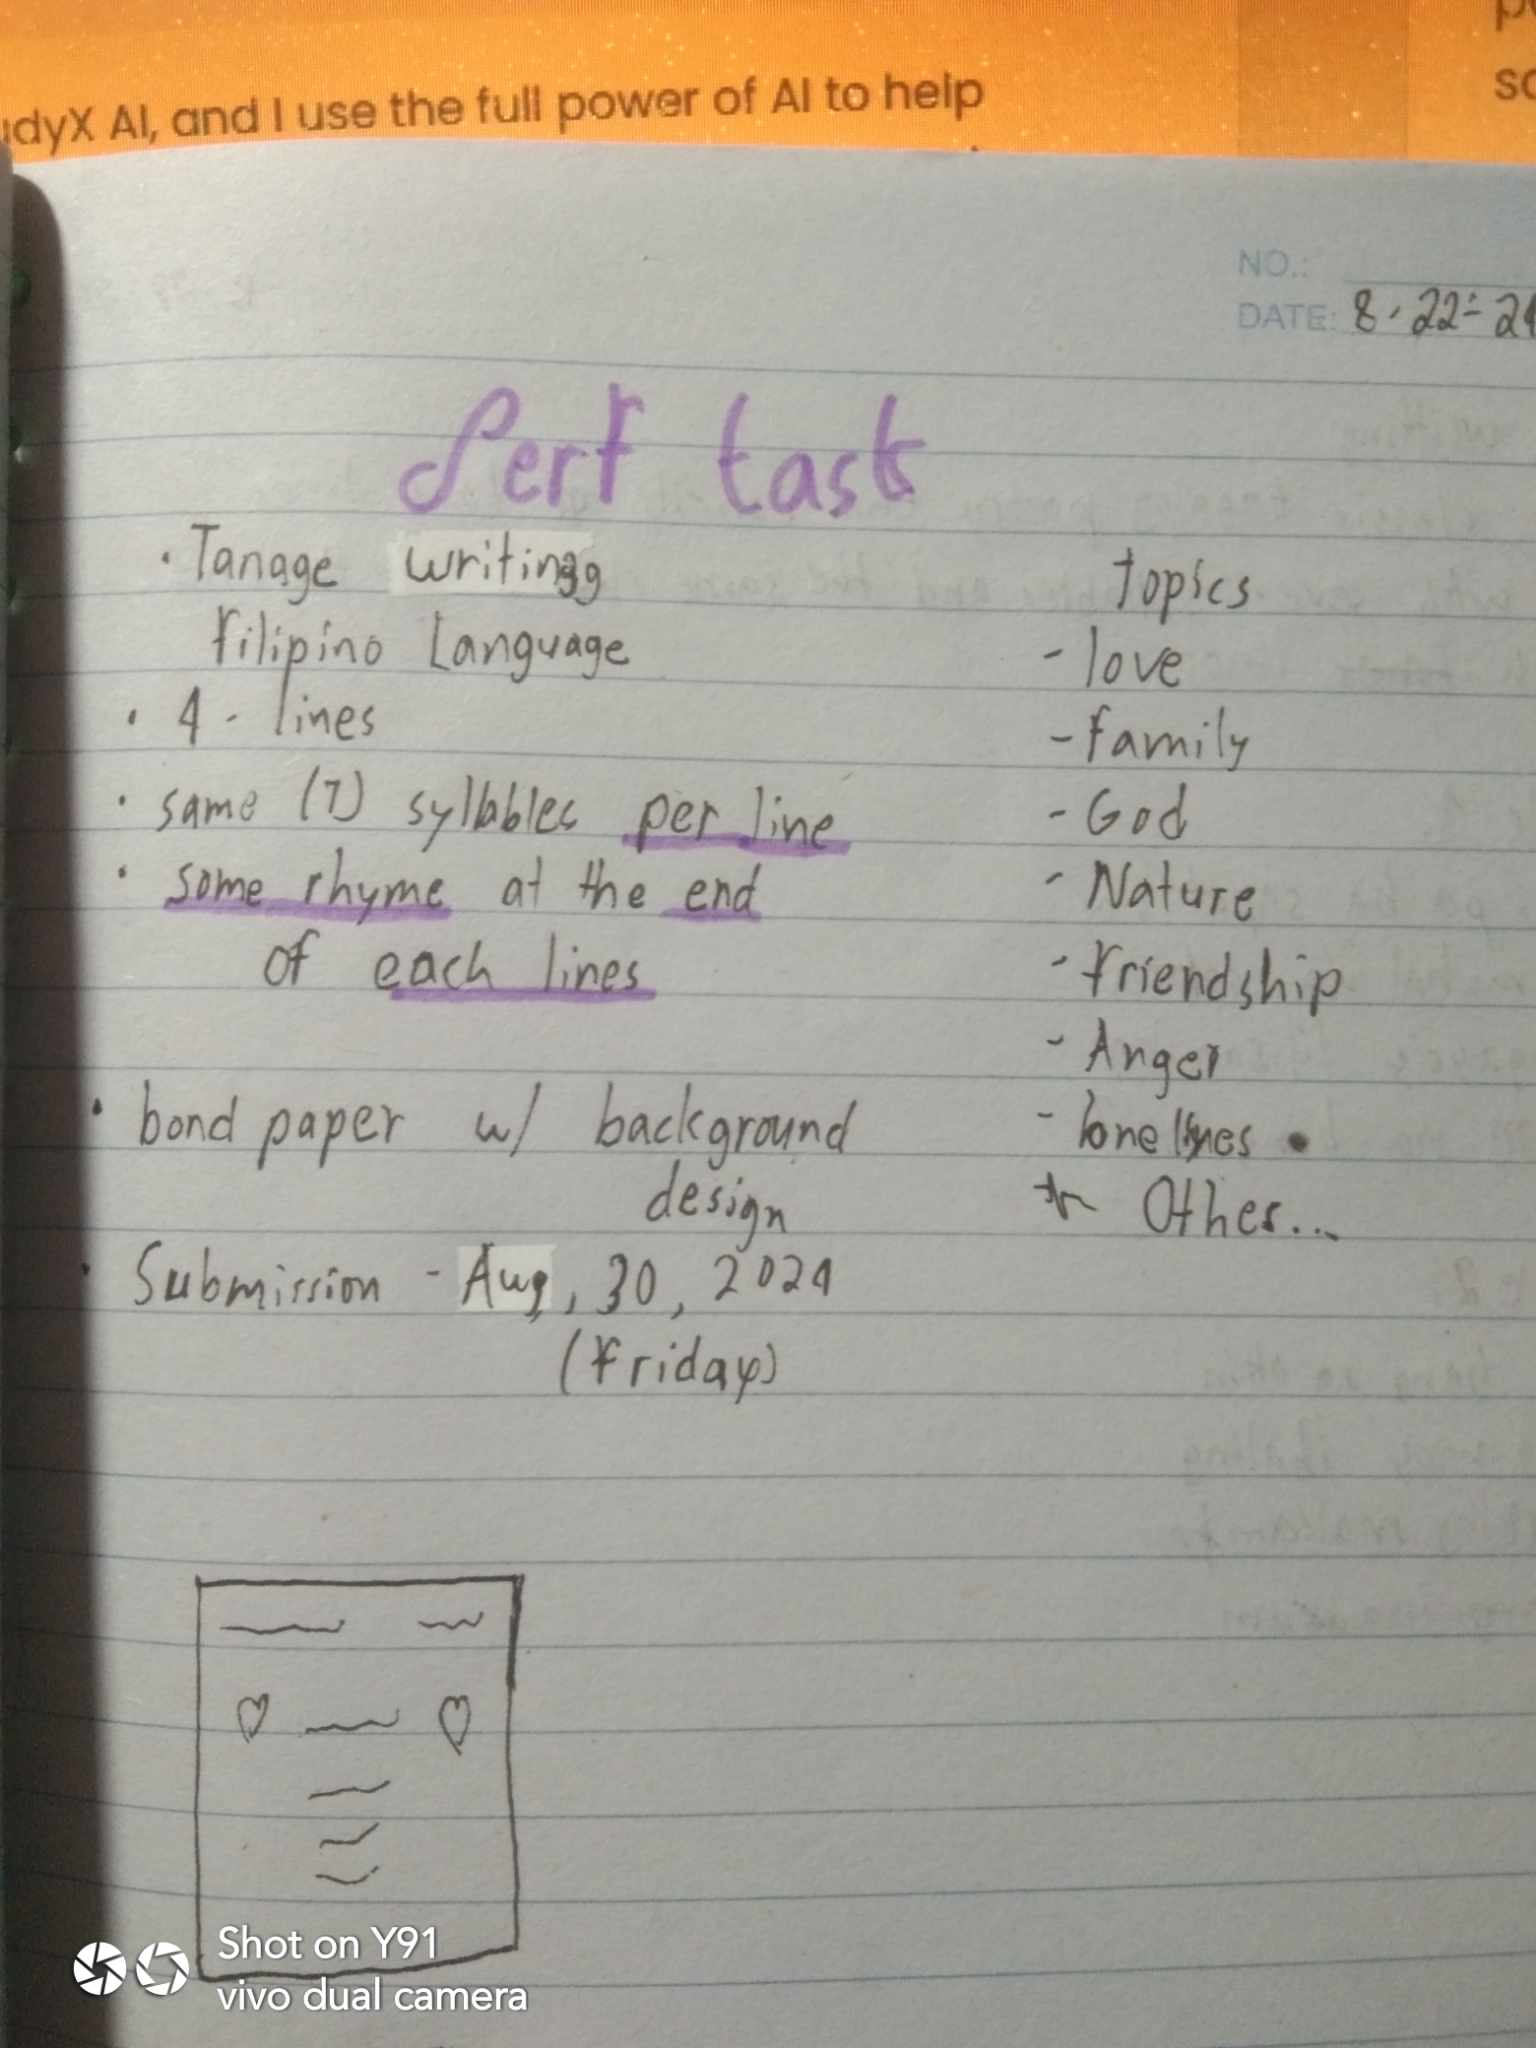 dyX AI, and I use the full power of AI to help
so
NO.:
DATE: 8-22-24
Perf task
• Tanage writing
Filipino Language
• 4 - lines
• same (7) syllables per line
• same rhyme at the end
of each lines
• bond paper w/ background
design
• Submission - Aug, 30, 2024
(Friday)
Topics
- love
- family
- God
- Nature
- Friendship
- Anger
- lonelynes
* Other...
Shot on Y91
vivo dual camera